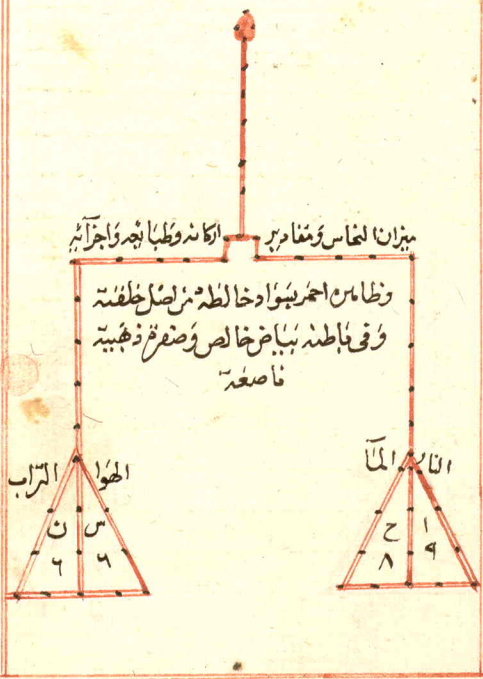 ميزان النحاس ومقادير اركانه وطبايعه واجزآئه
وظاهره احمر بسواد خالطه من اصل خلقته
وفى باطنه بياض خالص وصفرة ذهبية
ناصعة
النار المآ
الهوا التراب
ا ح
٩ ٨
س ن
٦ ٦